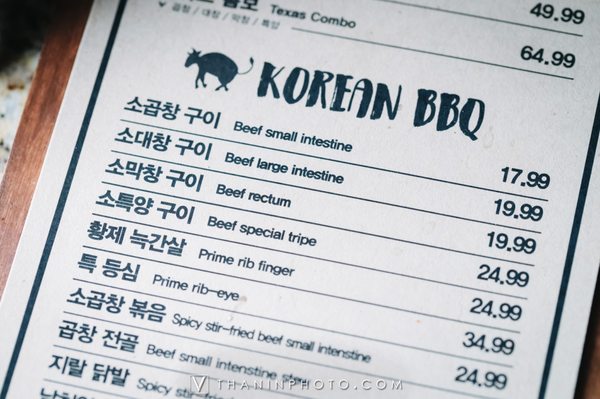 49.99
콤보 Texas Combo 64.99
곱창 / 대창 / 막창 / 특양
KOREAN BBQ
소곱창 구이 Beef small intestine 17.99
소대창 구이 Beef large intestine 19.99
소막창 구이 Beef rectum 19.99
소특양 구이 Beef special tripe 24.99
황제 늑간살 Prime rib finger 24.99
특 등심 Prime rib-eye 34.99
소곱창 볶음 Spicy stir-fried beef small intenstine 24.99
곱창 전골 Beef small intenstine stew
지랄 닭발 Spicy stir-fried
THANINPHOTO.COM